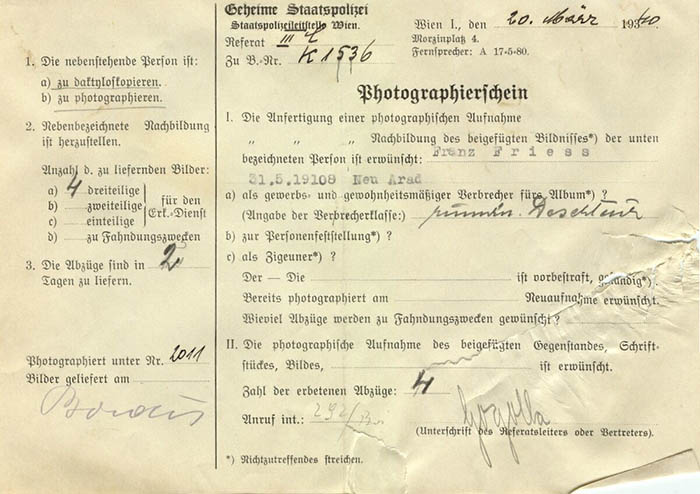 1. Die nebenstehende Person ist:
a) zu daktyloskopieren.
b) zu photographieren.
2. Nebenbezeichnete Nachbildung
ist herzustellen.
Anzahl d. zu liefernden Bilder:
a) 4 dreiteilige
b) zweiteilige
c) einteilige
für den
Erk.-Dienst
d) zu Fahndungszwecken
3. Die Abzüge sind in 2
Tagen zu liefern.
Photographiert unter Nr. 2011
Bilder geliefert am
Geheime Staatspolizei
Staatspolizeileitstelle Wien.
Referat III
Zu B.-Nr. K 1536
Wien I., den 20. März 1940
Morzinplatz 4.
Fernsprecher: A 17-5-80.
Photographierschein
I. Die Anfertigung einer photographischen Aufnahme
„ „ „ Nachbildung des beigefügten Bildnisses*) der unten
bezeichneten Person ist erwünscht: Franz Friess
31.5.19108 Neu Arad
a) als gewerbs- und gewohnheitsmäßiger Verbrecher fürs Album*) ?
(Angabe der Verbrecherklasse:)
b) zur Personenfeststellung*) ?
c) als Zigeuner*) ?
Der — Die ist vorbestraft, geständig*).
Bereits photographiert am Neuaufnahme erwünscht.
Wieviel Abzüge werden zu Fahndungszwecken gewünscht?
II. Die photographische Aufnahme des beigefügten Gegenstandes, Schrift-
stückes, Bildes, ist erwünscht.
Zahl der erbetenen Abzüge: 4
Anruf int.: 292
(Unterschrift des Referatsleiters oder Vertreters).
*) Nichtzutreffendes streichen.